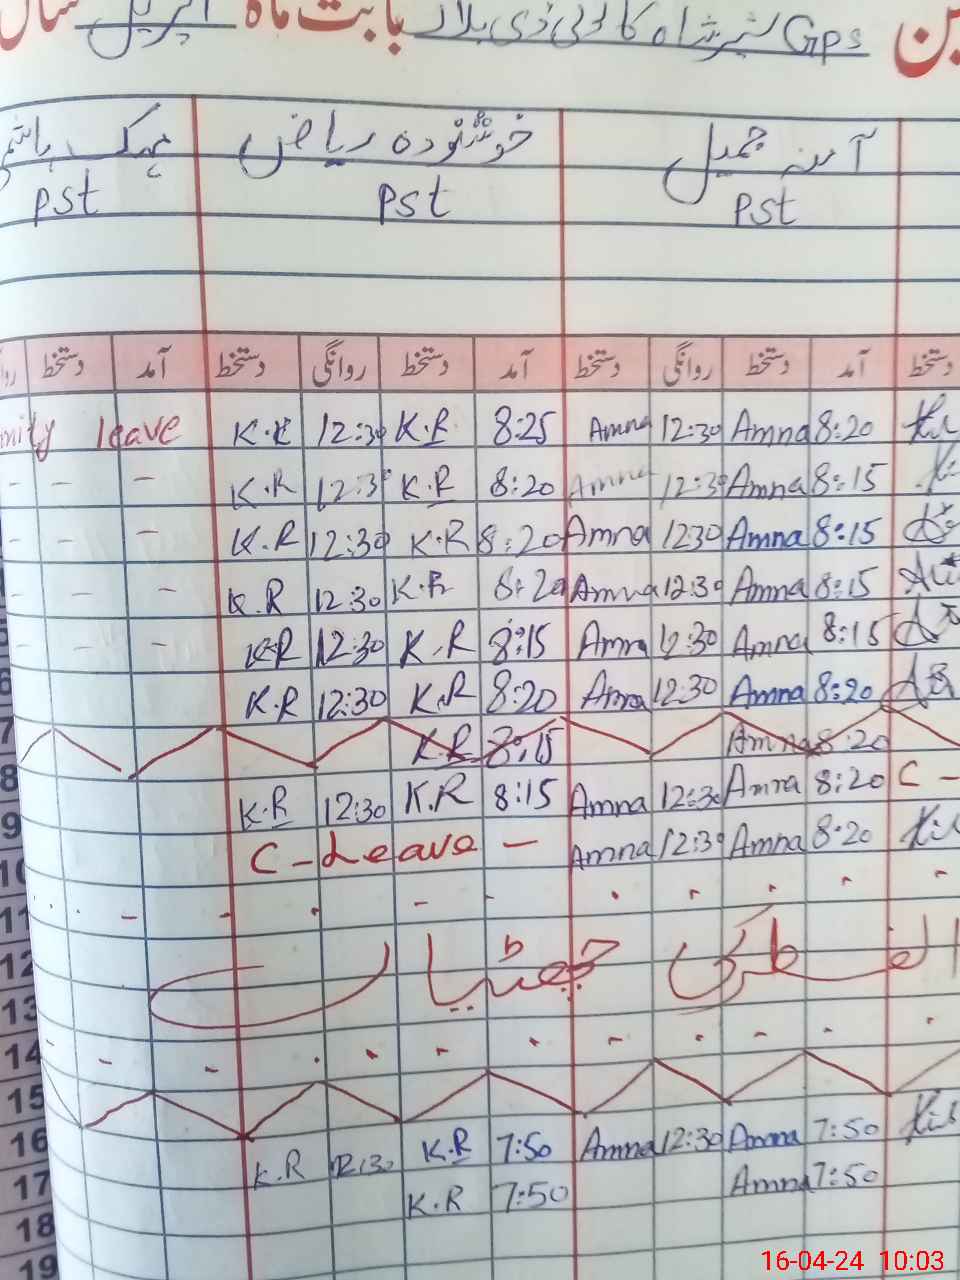 Gps بابت ماہ اپریل سال
آمنہ جمیل خوشنودہ ریاض مہک
PST PST PST
دستخط آمد دستخط روانگی دستخط آمد دستخط روانگی دستخط آمد دستخط
8:20 Amna 12:30 Amna 8:25 K.R 12:30 K.R leave
8:15 Amna 12:30 Amna 8:20 K.R 12:3 K.R - - -
8:15 Amna 1230 Amna 8:20 K.R 12:30 K.R - - -
8:15 Amna 12:30 Amna 8:20 K.R 12:30 K.R - - -
8:15 Amna 12:30 Amna 8:15 K.R 12:30 K.R - - -
6 8:20 Amna 12:30 Amna 8:20 K.R 12:30 K.R
7 8:20 Amna 8:15 K.R
8 C - 8:20 Amna 12:30 Amna 8:15 K.R 12:30 K.R
9 8:20 Amna 12:30 Amna C - Leave -
10
11
12 الفطر کی چھٹیاں
13
14
15
16 7:50 Amna 12:30 Amna 7:50 K.R 12:30 K.R
17 7:50 Amna 7:50 K.R
18
19
16-04-24 10:03